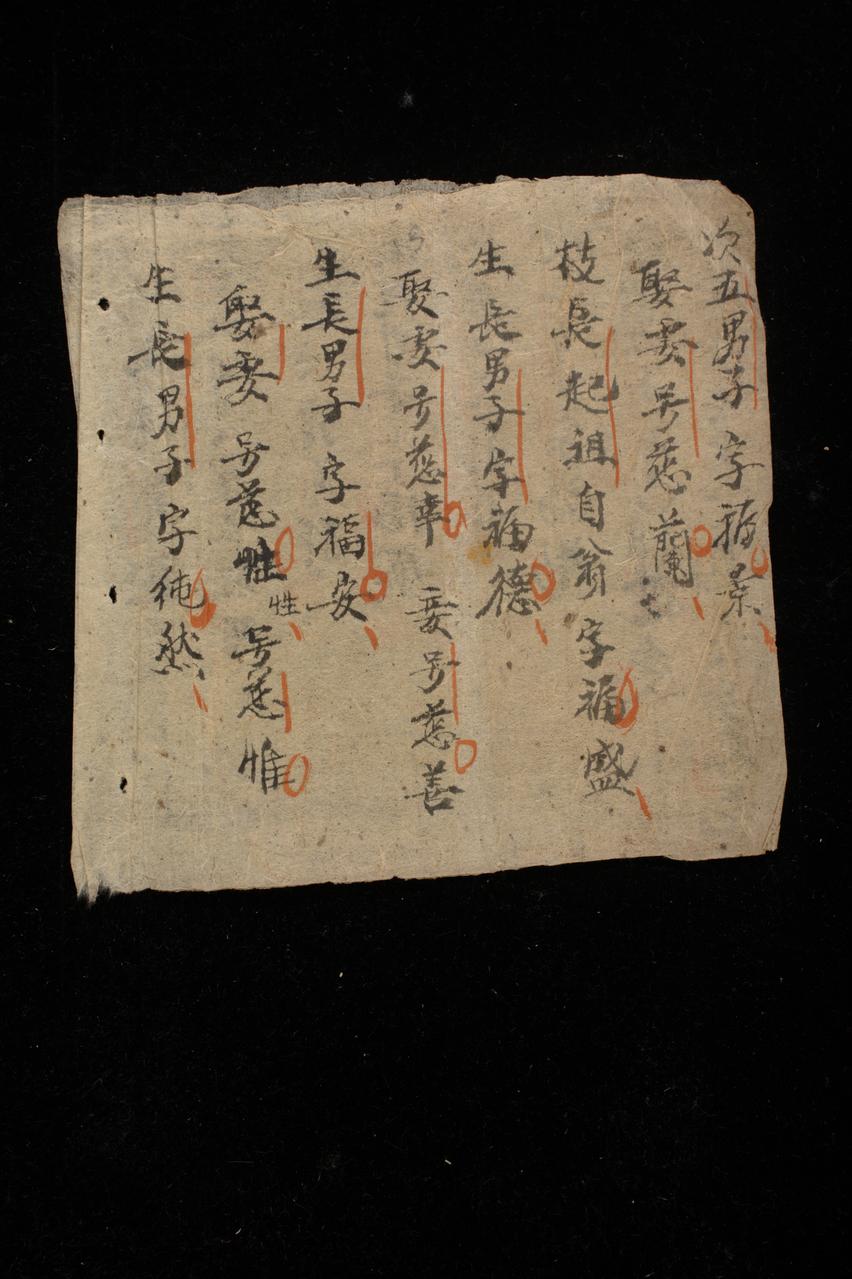 次五男子字福景
娶妻号慈蘭
枝長起祖自翁字福盛
生長男子字福德
娶妻号慈幸 妾号慈善
生長男子字福安
娶妻号慈性 性 号慈惟
生長男子字純然